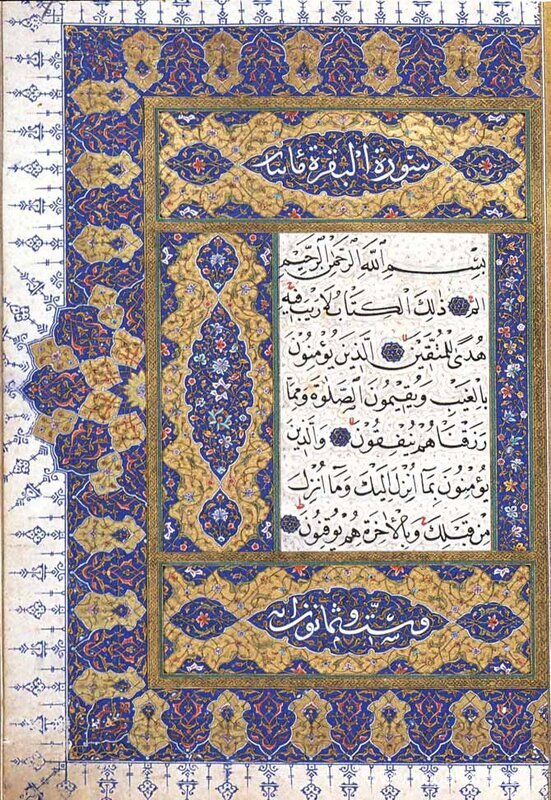 سورة البقرة مائتا
بِسْمِ اللَّهِ الرَّحْمَٰنِ الرَّحِيمِ
الم ذَٰلِكَ الْكِتَابُ لَا رَيْبَ فِيهِ
هُدًى لِلْمُتَّقِينَ الَّذِينَ يُؤْمِنُونَ
بِالْغَيْبِ وَيُقِيمُونَ الصَّلَوٰةَ وَمِمَّا
رَزَقْنَاهُمْ يُنْفِقُونَ وَالَّذِينَ
يُؤْمِنُونَ بِمَا أُنْزِلَ إِلَيْكَ وَمَا أُنْزِلَ
مِنْ قَبْلِكَ وَبِالْآخِرَةِ هُمْ يُوقِنُونَ
وست وثمانون اية